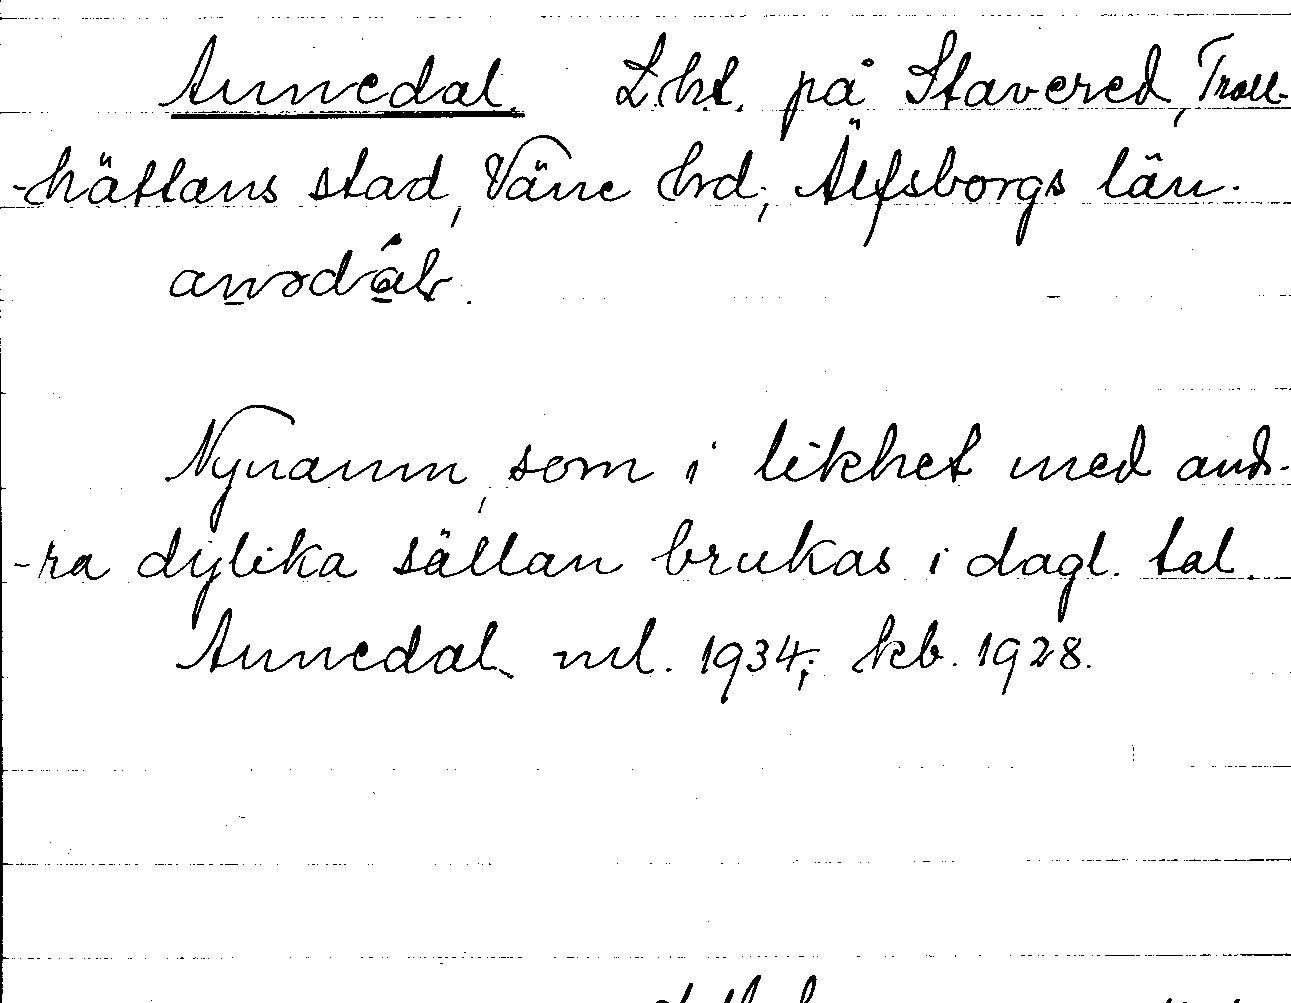 Annedal. Lht. på Stavered, Troll-
-hättans stad, Väne hd, Älfsborgs län.
Nynamn, som i likhet med and-
-ra dylika sällan brukas i dagl. tal.
Annedal ml. 1934; kb. 1928.